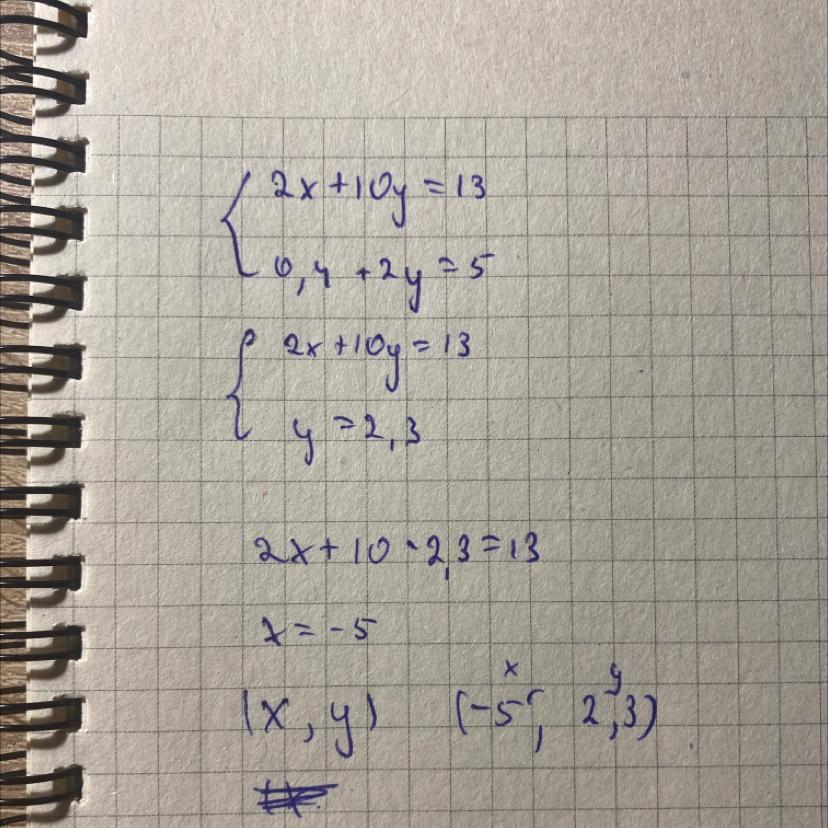 2x+10y=13
0,4+2y=5
2x+10y=13
y=2,3
2x+10·2,3=13
x=-5
(x,y) (-5, 2,3)
x y